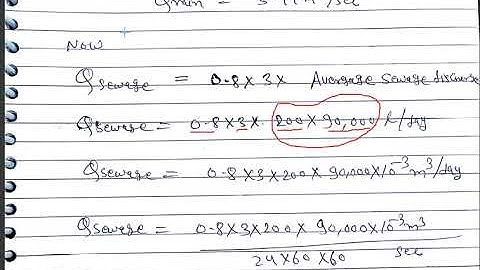 Now
Qsewage = 0.8 X 3 X Average sewage discharge
Qsewage = 0.8 X 3 X 200 X 90,000 l/day
Qsewage = 0.8 X 3 X 200 X 90,000 X 10⁻³ m³/day
Qsewage = 0.8 X 3 X 200 X 90,000 X 10⁻³ m³
24 X 60 X 60 sec